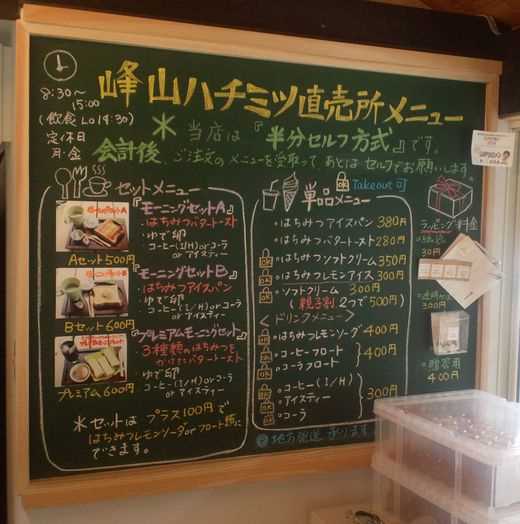 峰山ハチミツ直売所メニュー
8:30〜
15:00
(飲食 LO 14:30)
定休日
月・金
＊当店は『半分セルフ方式』です。
会計後、ご注文のメニューを受取って あとは セルフでお願いします。
セットメニュー
『モーニングセットA』
・はちみつバタートースト
・ゆで卵
・コーヒー(I/H) or コーラ
or アイスティー
Aセット 500円
『モーニングセットB』
・はちみつアイスパン
・ゆで卵
・コーヒー(I/H) or コーラ
or アイスティー
Bセット 600円
『プレミアムモーニングセット』
・3種類のはちみつを
かけたバタートースト
・ゆで卵
・コーヒー(I/H) or コーラ
or アイスティー
プレミアム 600円
＊セットは プラス100円で
はちみつレモンソーダ or フロート類に
できます。
単品メニュー
OK Takeout 可
・はちみつアイスパン 380円
・はちみつバタートースト 280円
OK ・はちみつソフトクリーム 350円
OK ・はちみつレモンアイス 300円
OK ・ソフトクリーム 300円
(親子割 2つで500円)
〈ドリンクメニュー〉
OK ・はちみつレモンソーダ 400円
OK ・コーヒーフロート
OK ・コーラフロート
400円
OK ・コーヒー(I/H)
OK ・アイスティー
OK ・コーラ
300円
地方発送 承ります
ラッピング料金
30円
300円
・贈答用
400円